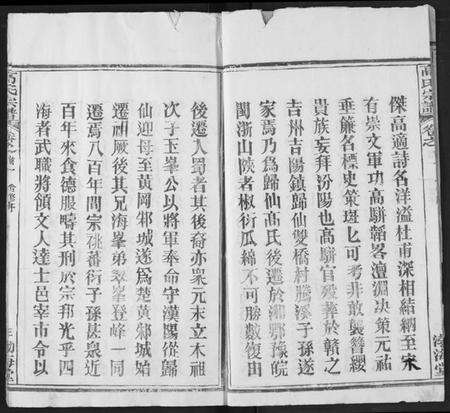 高氏宗譜
卷之
渤海堂
傑高適詩名洋溢杜甫深相結納至宋
有崇文軍功高駢韜畧澶淵决策元祐
垂簾各標史策斑匕可考非敢襲簪纓
貴族妄拜汾陽也高駢官殁葬於贛之
吉州吉陽鎮歸仙雙橋村騰溪子孫遂
家焉乃為歸仙高氏後遷於湘鄂豫皖
閩浙山陝者椒衍瓜綿不可勝數復由
後遷入蜀者其後裔亦衆元末立木祖
次子玉峯公以將軍奉命守漢陽從歸
仙迎母至黃岡邾城遂爲楚黃邾城始
遷祖厥後其兄海峯弟翠峯登峰一同
遷焉八百年間宗祧蕃衍子孫甚衆近
百年來食德服疇其刑於宗邦光乎四
海者武職將領文人達士邑宰市令以
高氏宗譜
渤海堂